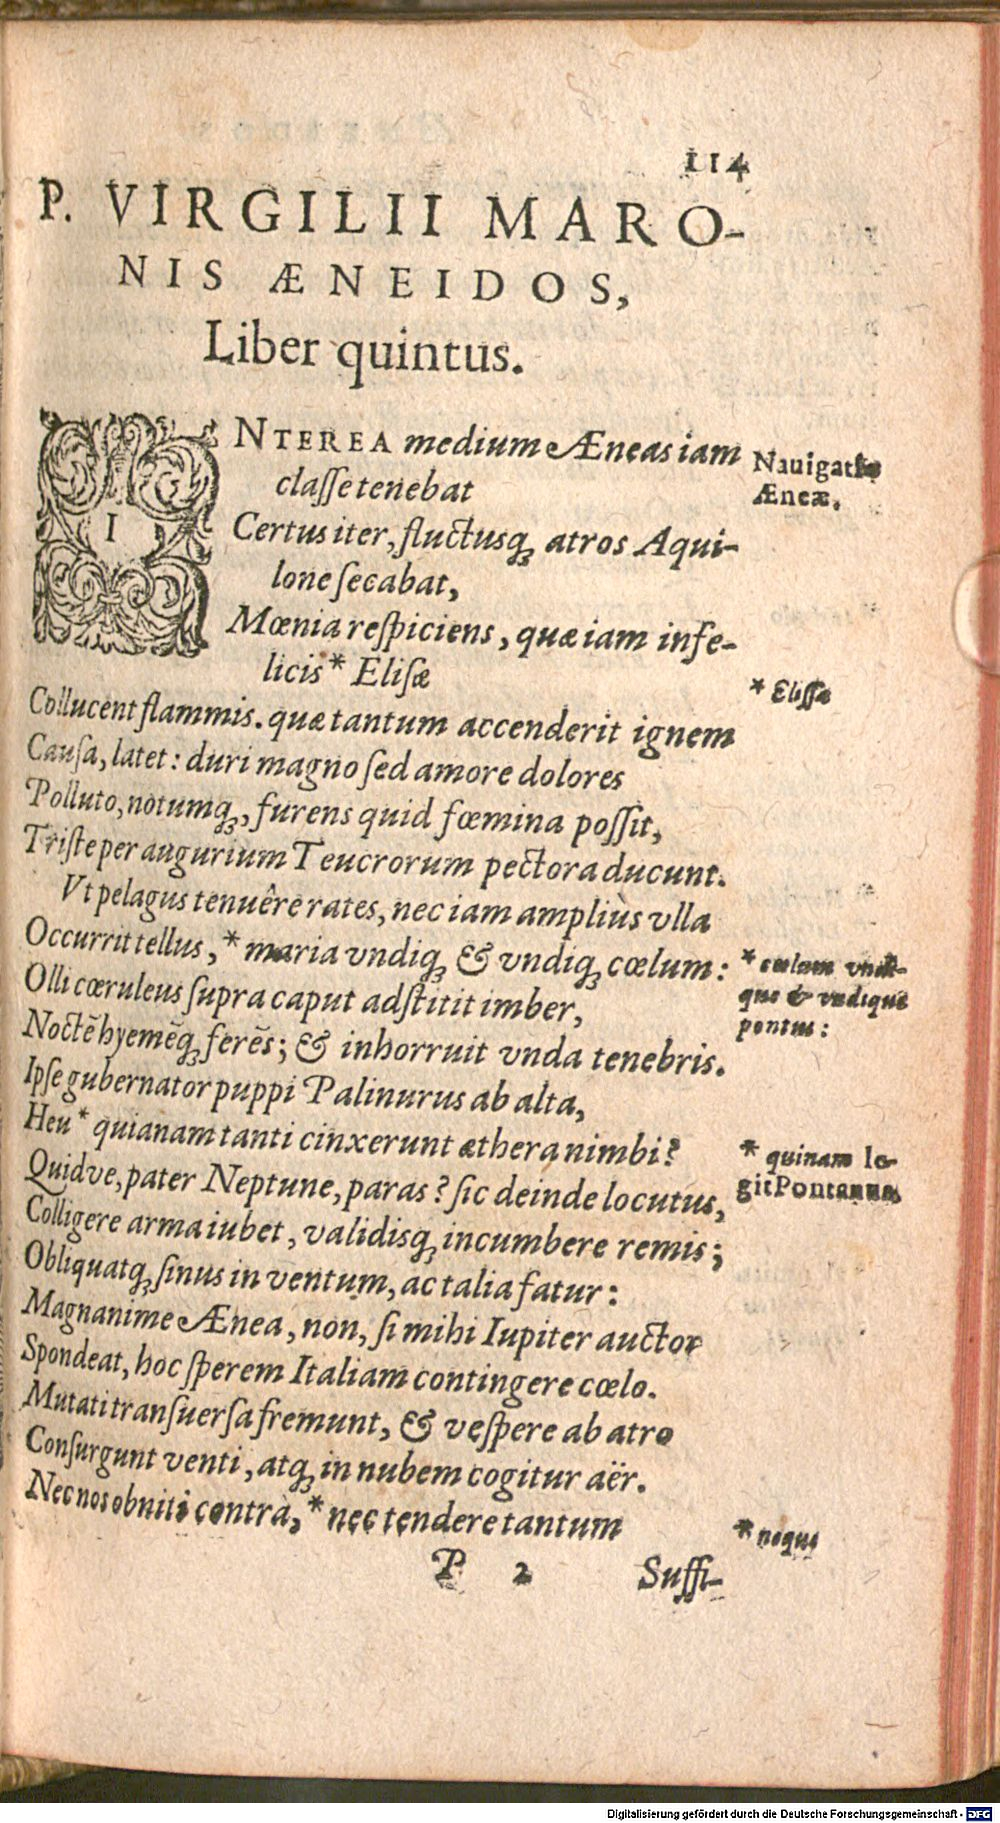 114
P. VIRGILII MARO-
NIS ÆNEIDOS,
Liber quintus.
INTEREA medium Æneas iam
claſſe tenebat
Nauigatio
Æneæ.
Certus iter, fluctusq; atros Aqui-
lone ſecabat,
Mœnia reſpiciens, quæ iam infe-
licis * Eliſæ
* Eliſſæ
Collucent flammis. quæ tantum accenderit ignem
Cauſa, latet: duri magno ſed amore dolores
Polluto, notumq;, furens quid fœmina poſſit,
Triſte per augurium Teucrorum pectora ducunt.
Vt pelagus tenuêre rates, nec iam ampliùs vlla
Occurrit tellus, * maria vndiq; & vndiq; cœlum:
* cœlum vndi-
que & vndique
pontus:
Olli cœruleus ſupra caput adſtitit imber,
Noctē hyemēq; ferēs; & inhorruit vnda tenebris.
Ipſe gubernator puppi Palinurus ab alta,
Heu * quianam tanti cinxerunt æthera nimbi?
* quinam le-
git Pontanus
Quidve, pater Neptune, paras? ſic deinde locutus,
Colligere arma iubet, validisq; incumbere remis;
Obliquatq; ſinus in ventum, ac talia fatur:
Magnanime Ænea, non, ſi mihi Iupiter auctor
Spondeat, hoc ſperem Italiam contingere cœlo.
Mutati tranſuerſa fremunt, & veſpere ab atro
Conſurgunt venti, atq; in nubem cogitur aër.
Nec nos obniti contrà, * nec tendere tantum
* neque
P 2
Suffi-
Digitalisierung gefördert durch die Deutsche Forschungsgemeinschaft - DFG